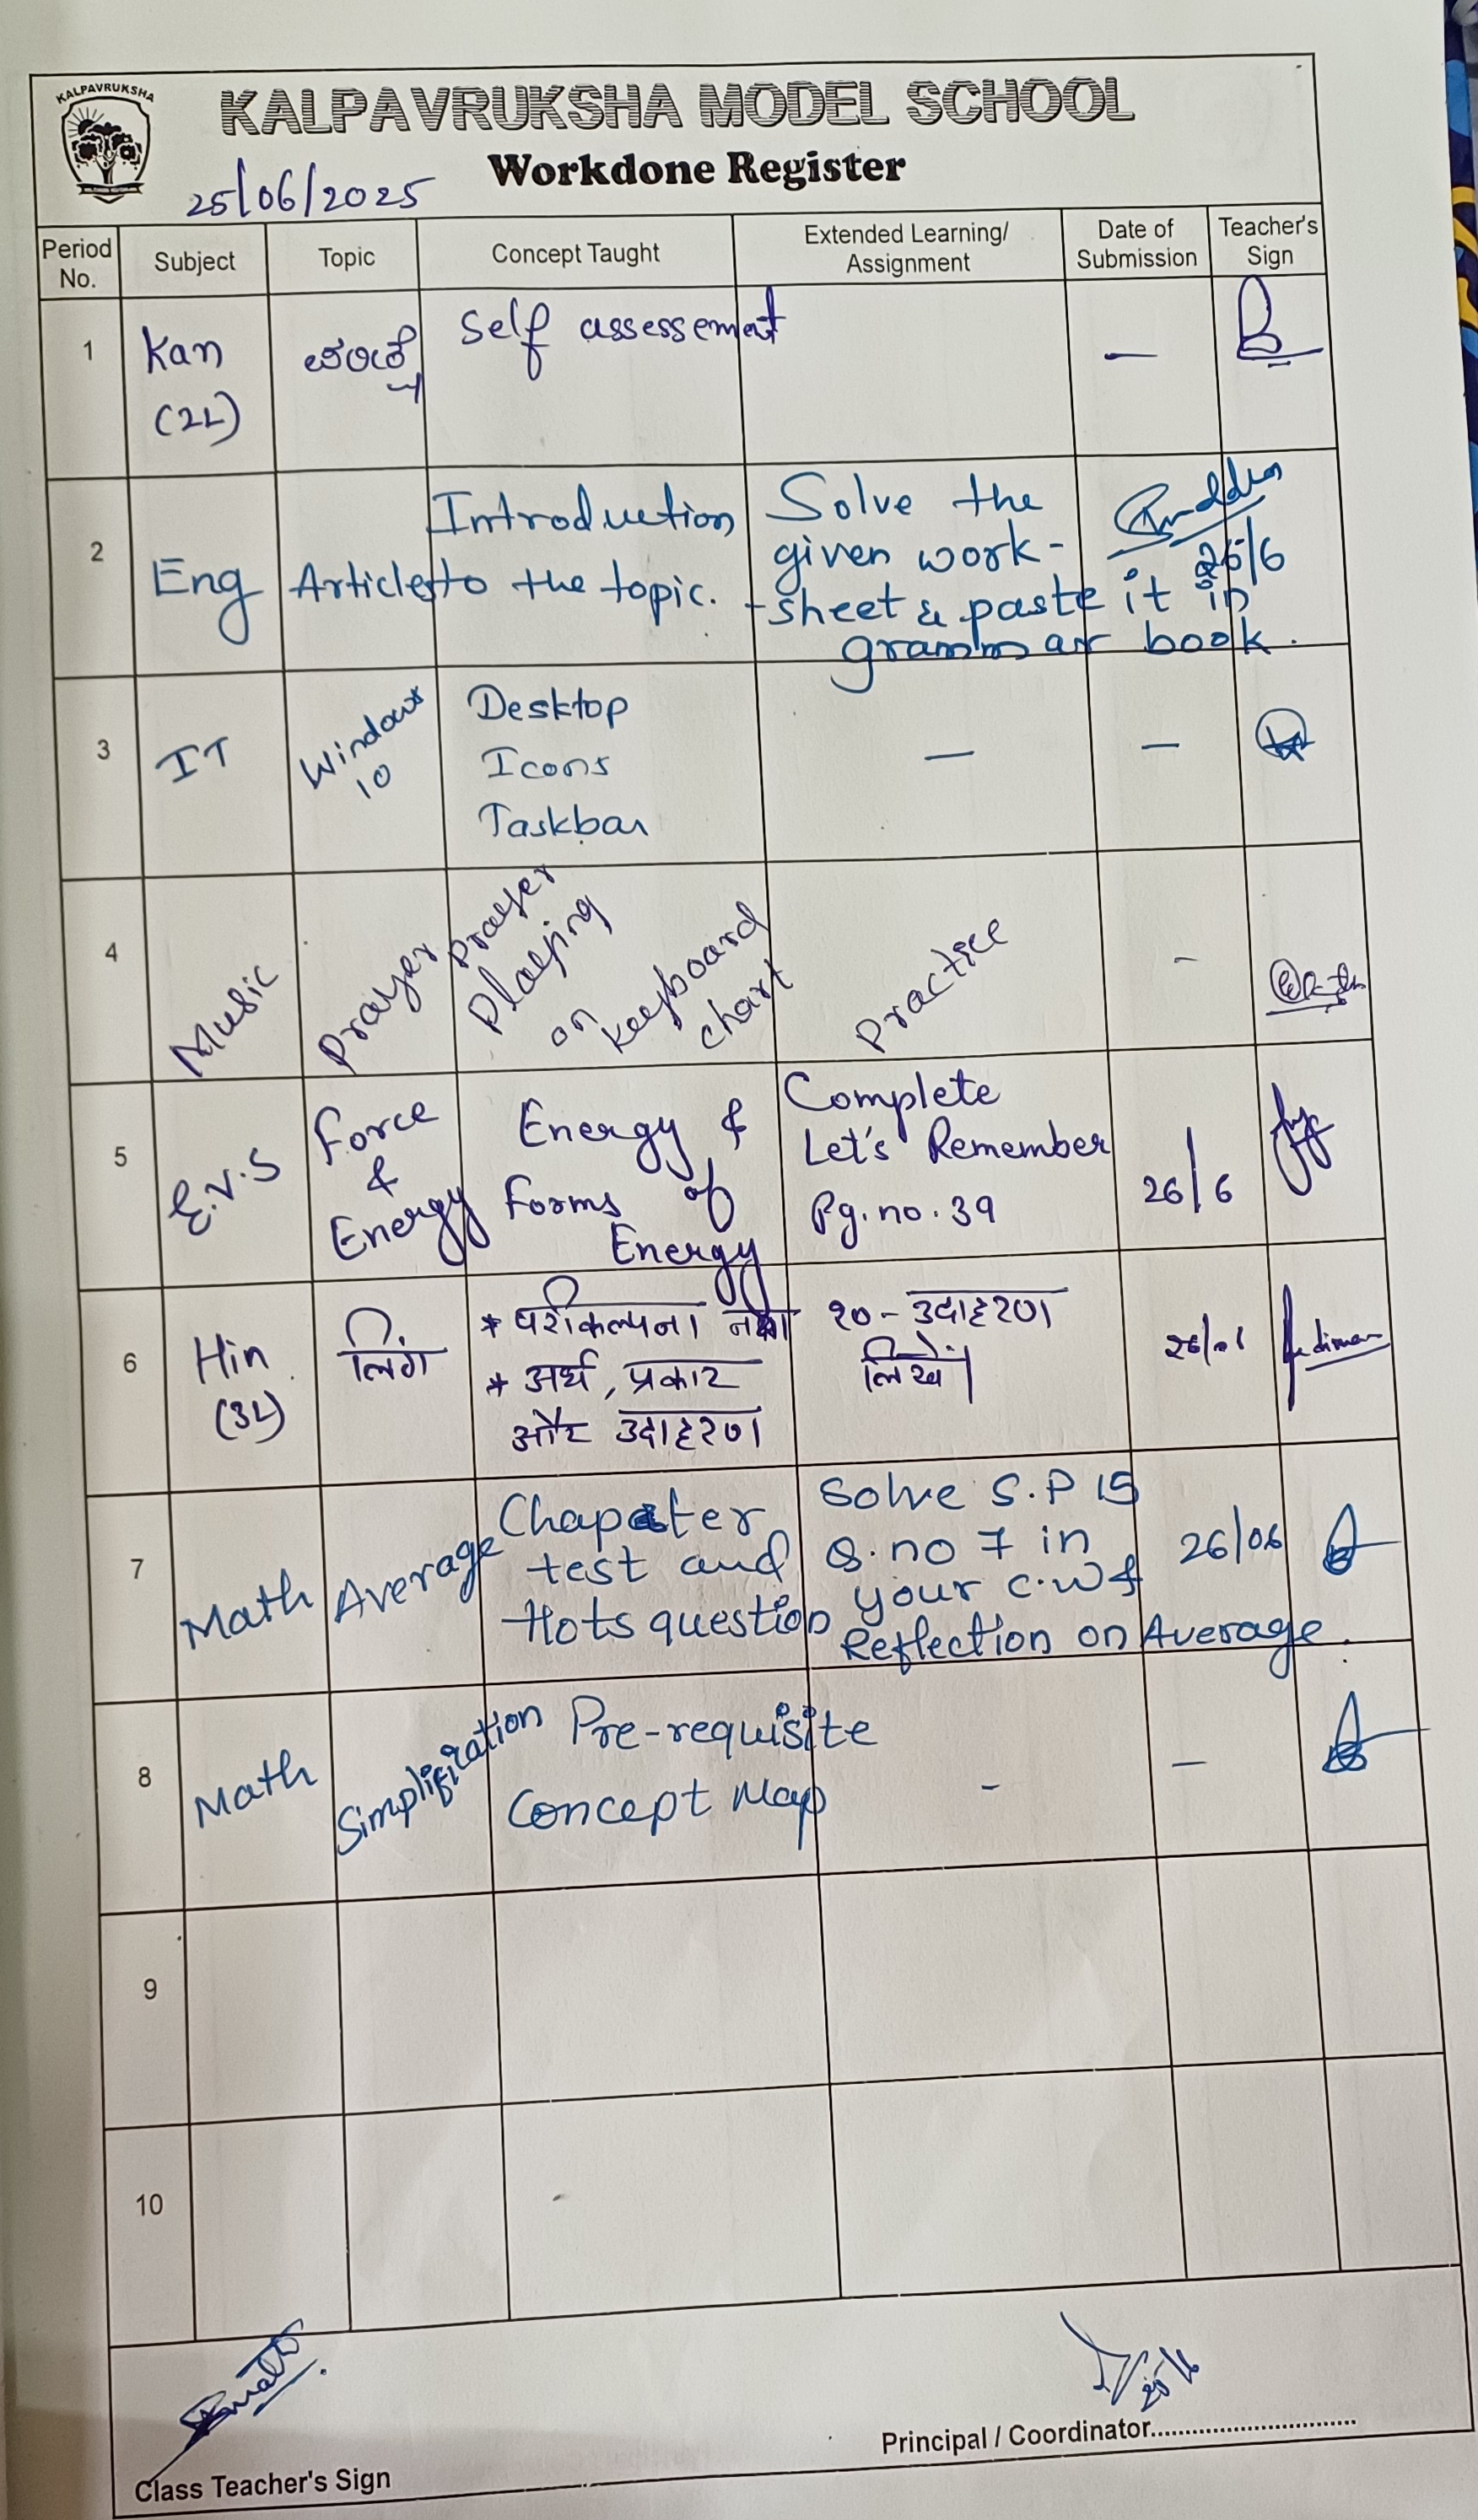 KALPAVRUKSHA
KALPAVRUKSHA MODEL SCHOOL
Workdone Register
25/06/2025
Period No.
Subject
Topic
Concept Taught
Extended Learning/ Assignment
Date of Submission
Teacher's Sign
1
Kan
(2L)
Self assessement
—
2
Eng
Articles
Introduction
to the topic.
Solve the
given work-
-sheet & paste it in
grammar book.
26/6
3
IT
Windows
10
Desktop
Icons
Taskbar
—
—
4
Music
Prayer
Prayer
Playing
on
keyboard
chart
Practice
-
5
E.V.S
Force
&
Energy
Energy &
Forms of
Energy
Complete
Let's Remember
Pg.no.39
26/6
6
Hin
(3L)
लिंग
* परीकल्पना
* अर्थ, प्रकार
और उदाहरण
१०-उदाहरण
लिखें।
7
Math
Average
Chapater
test and
Hots question
Solve S.P 15
Q.no 7 in
your C.W &
Reflection on Average.
26/06
8
Math
Simplification
Pre-requisite
Concept Map
-
—
9
10
Class Teacher's Sign
Principal / Coordinator..............................